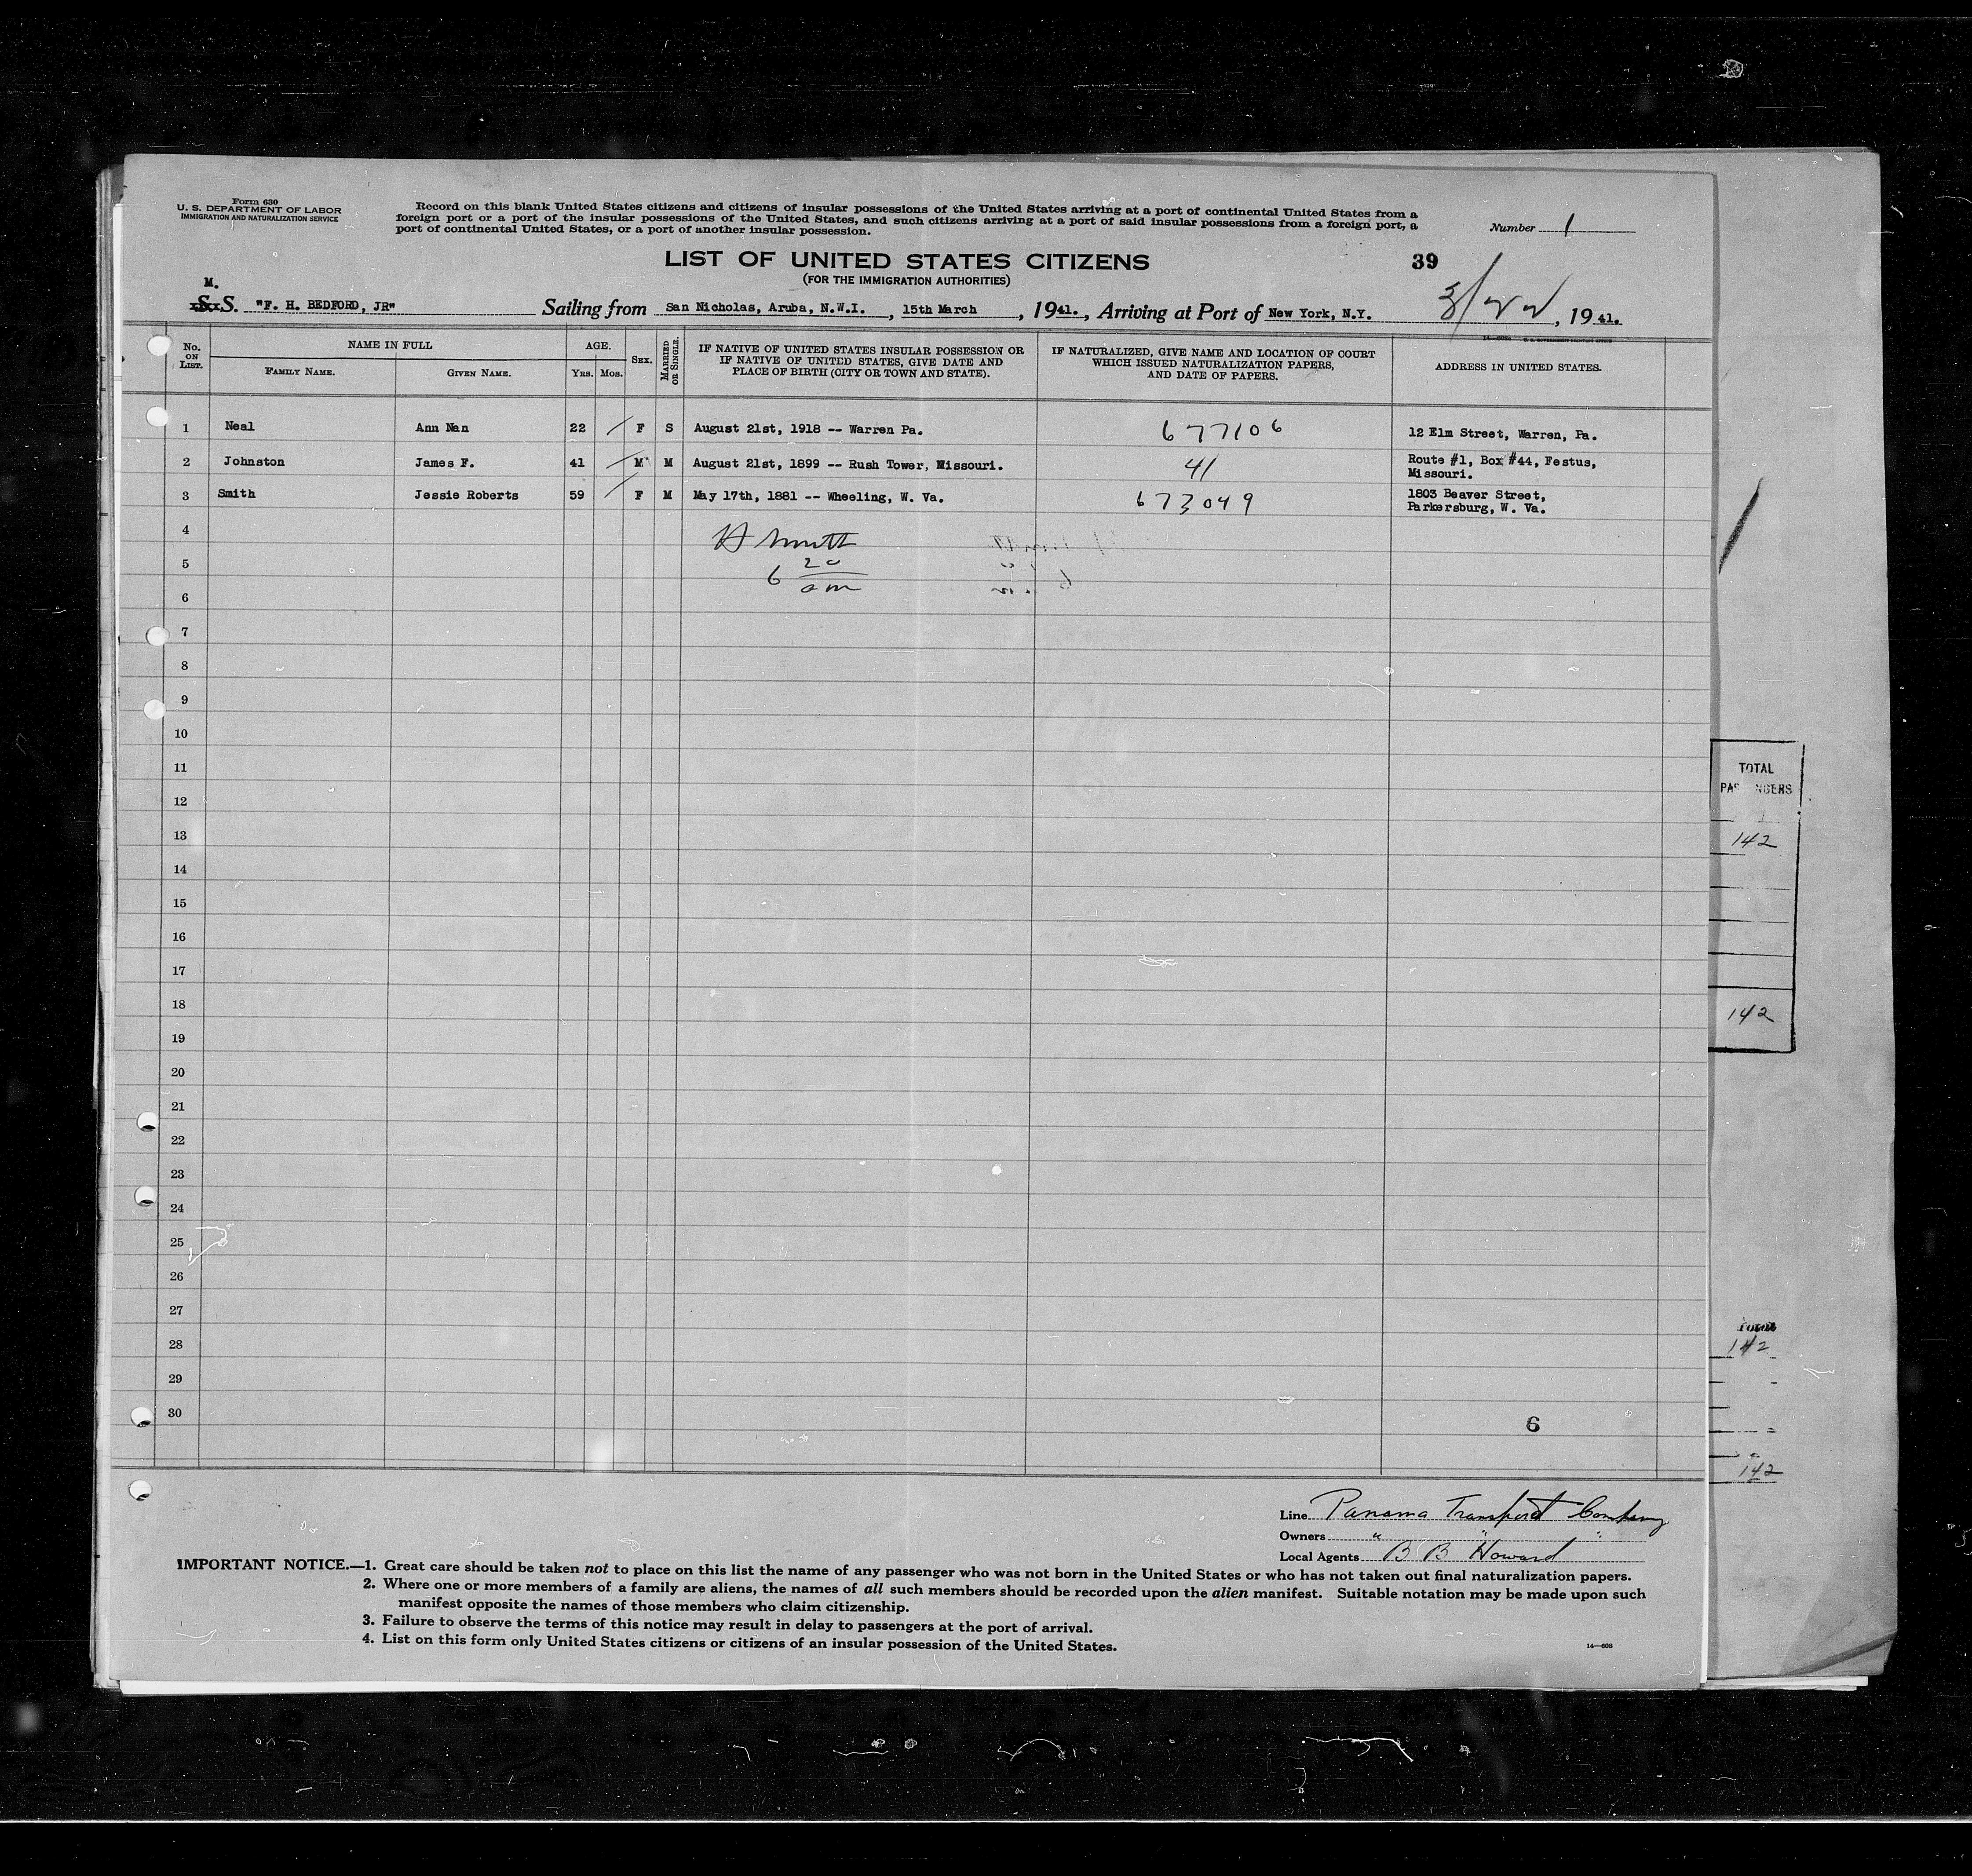 Form 630
U. S. DEPARTMENT OF LABOR
IMMIGRATION AND NATURALIZATION SERVICE
Record on this blank United States citizens and citizens of insular possessions of the United States arriving at a port of continental United States from a
foreign port or a port of the insular possessions of the United States, and such citizens arriving at a port of said insular possessions from a foreign port, a
port of continental United States, or a port of another insular possession.
Number 1
LIST OF UNITED STATES CITIZENS
39
(FOR THE IMMIGRATION AUTHORITIES)
M.
S. S. "F. H. BEDFORD, JR" Sailing from San Nicholas, Aruba, N.W.I. , 15th March , 1941. , Arriving at Port of New York, N.Y. 3/22 , 1941.
No. ON LIST. NAME IN FULL AGE. SEX. MARRIED OR SINGLE. IF NATIVE OF UNITED STATES INSULAR POSSESSION OR IF NATIVE OF UNITED STATES, GIVE DATE AND PLACE OF BIRTH (CITY OR TOWN AND STATE). IF NATURALIZED, GIVE NAME AND LOCATION OF COURT WHICH ISSUED NATURALIZATION PAPERS, AND DATE OF PAPERS. ADDRESS IN UNITED STATES.
FAMILY NAME. GIVEN NAME. YRS. MOS.
1 Neal Ann Nan 22 / F S August 21st, 1918 -- Warren Pa. 677106 12 Elm Street, Warren, Pa.
2 Johnston James F. 41 / M M August 21st, 1899 -- Rush Tower, Missouri. 41 Route #1, Box #44, Festus,
Missouri.
3 Smith Jessie Roberts 59 / F M May 17th, 1881 -- Wheeling, W. Va. 673049 1803 Beaver Street,
Parkersburg, W. Va.
4 H Smith
5 6 20
am
6
7
8
9
10
11
12
13
14
15
16
17
18
19
20
21
22
23
24
25
26
27
28
29
30
6
TOTAL
142
142
142
142
Line Panama Transport Company
Owners " " "
Local Agents B B Howard
IMPORTANT NOTICE.—1. Great care should be taken not to place on this list the name of any passenger who was not born in the United States or who has not taken out final naturalization papers.
2. Where one or more members of a family are aliens, the names of all such members should be recorded upon the alien manifest. Suitable notation may be made upon such
manifest opposite the names of those members who claim citizenship.
3. Failure to observe the terms of this notice may result in delay to passengers at the port of arrival.
4. List on this form only United States citizens or citizens of an insular possession of the United States.
14—608